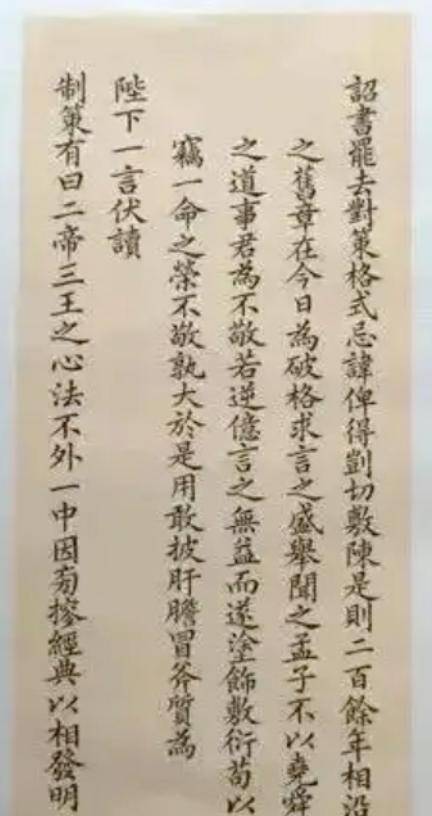 詔書罷去對策格式忌諱俾得剴切敷陳是則二百餘年相沿
之舊章在今日為破格求言之盛舉聞之孟子不以堯舜
之道事君為不敬若逆億言之無益而遂塗飾敷衍苟以
竊一命之榮不敬孰大於是用敢披肝膽冒斧質為
陛下一言伏讀
制策有曰二帝三王之心法不外一中因旁搜經典以相發明